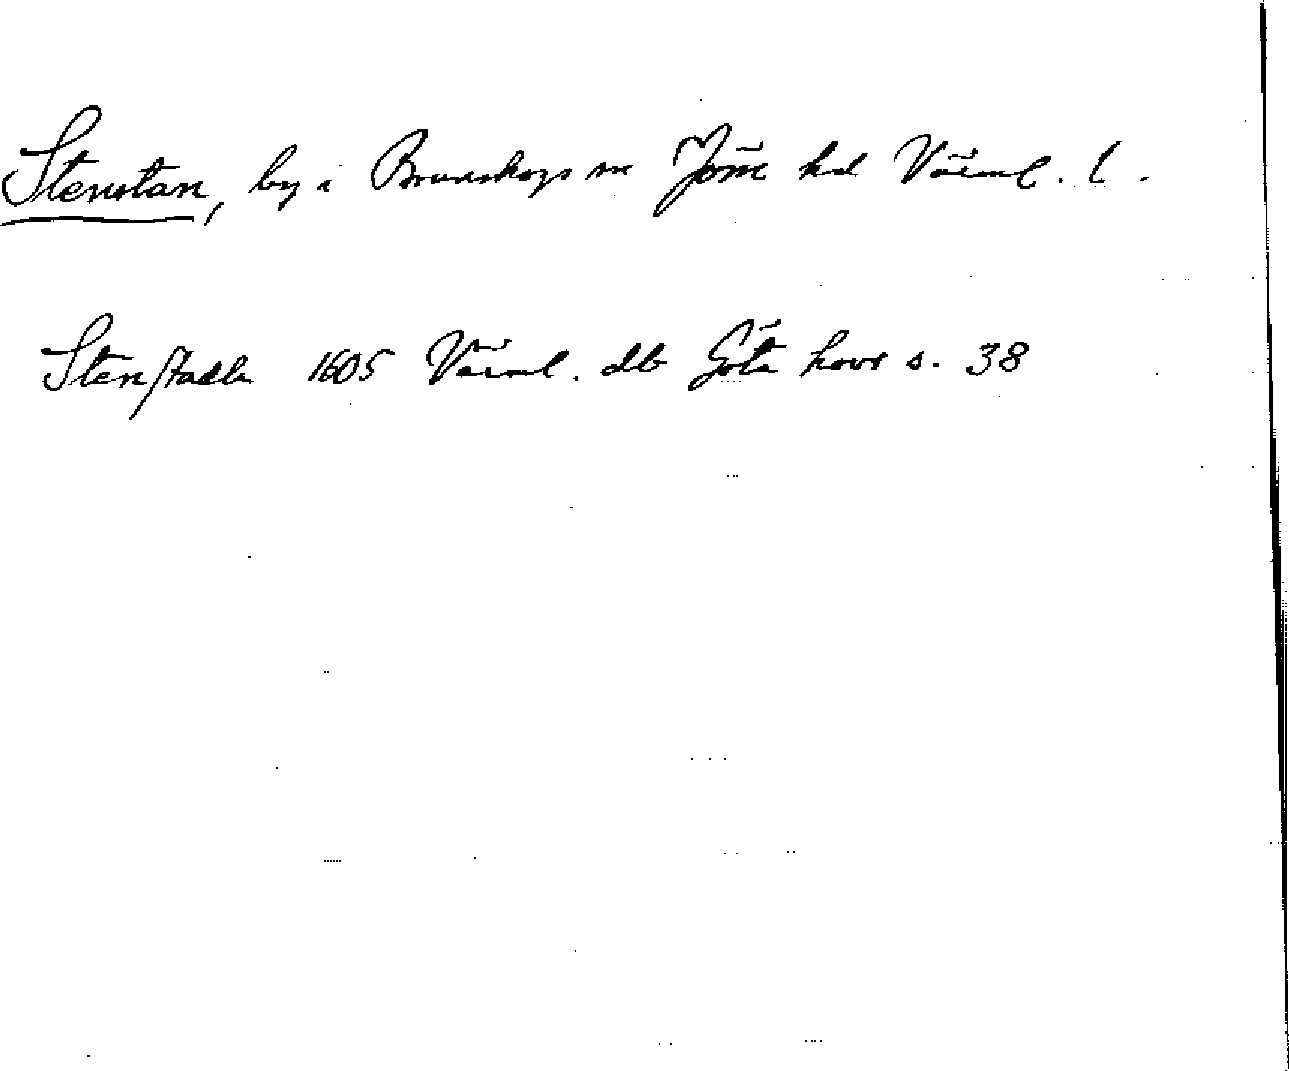 Stenstan, by i Brunskogs sn Jöss hd Värml. l.
Stenstadh 1605 Värml. db Göta hovr s. 38